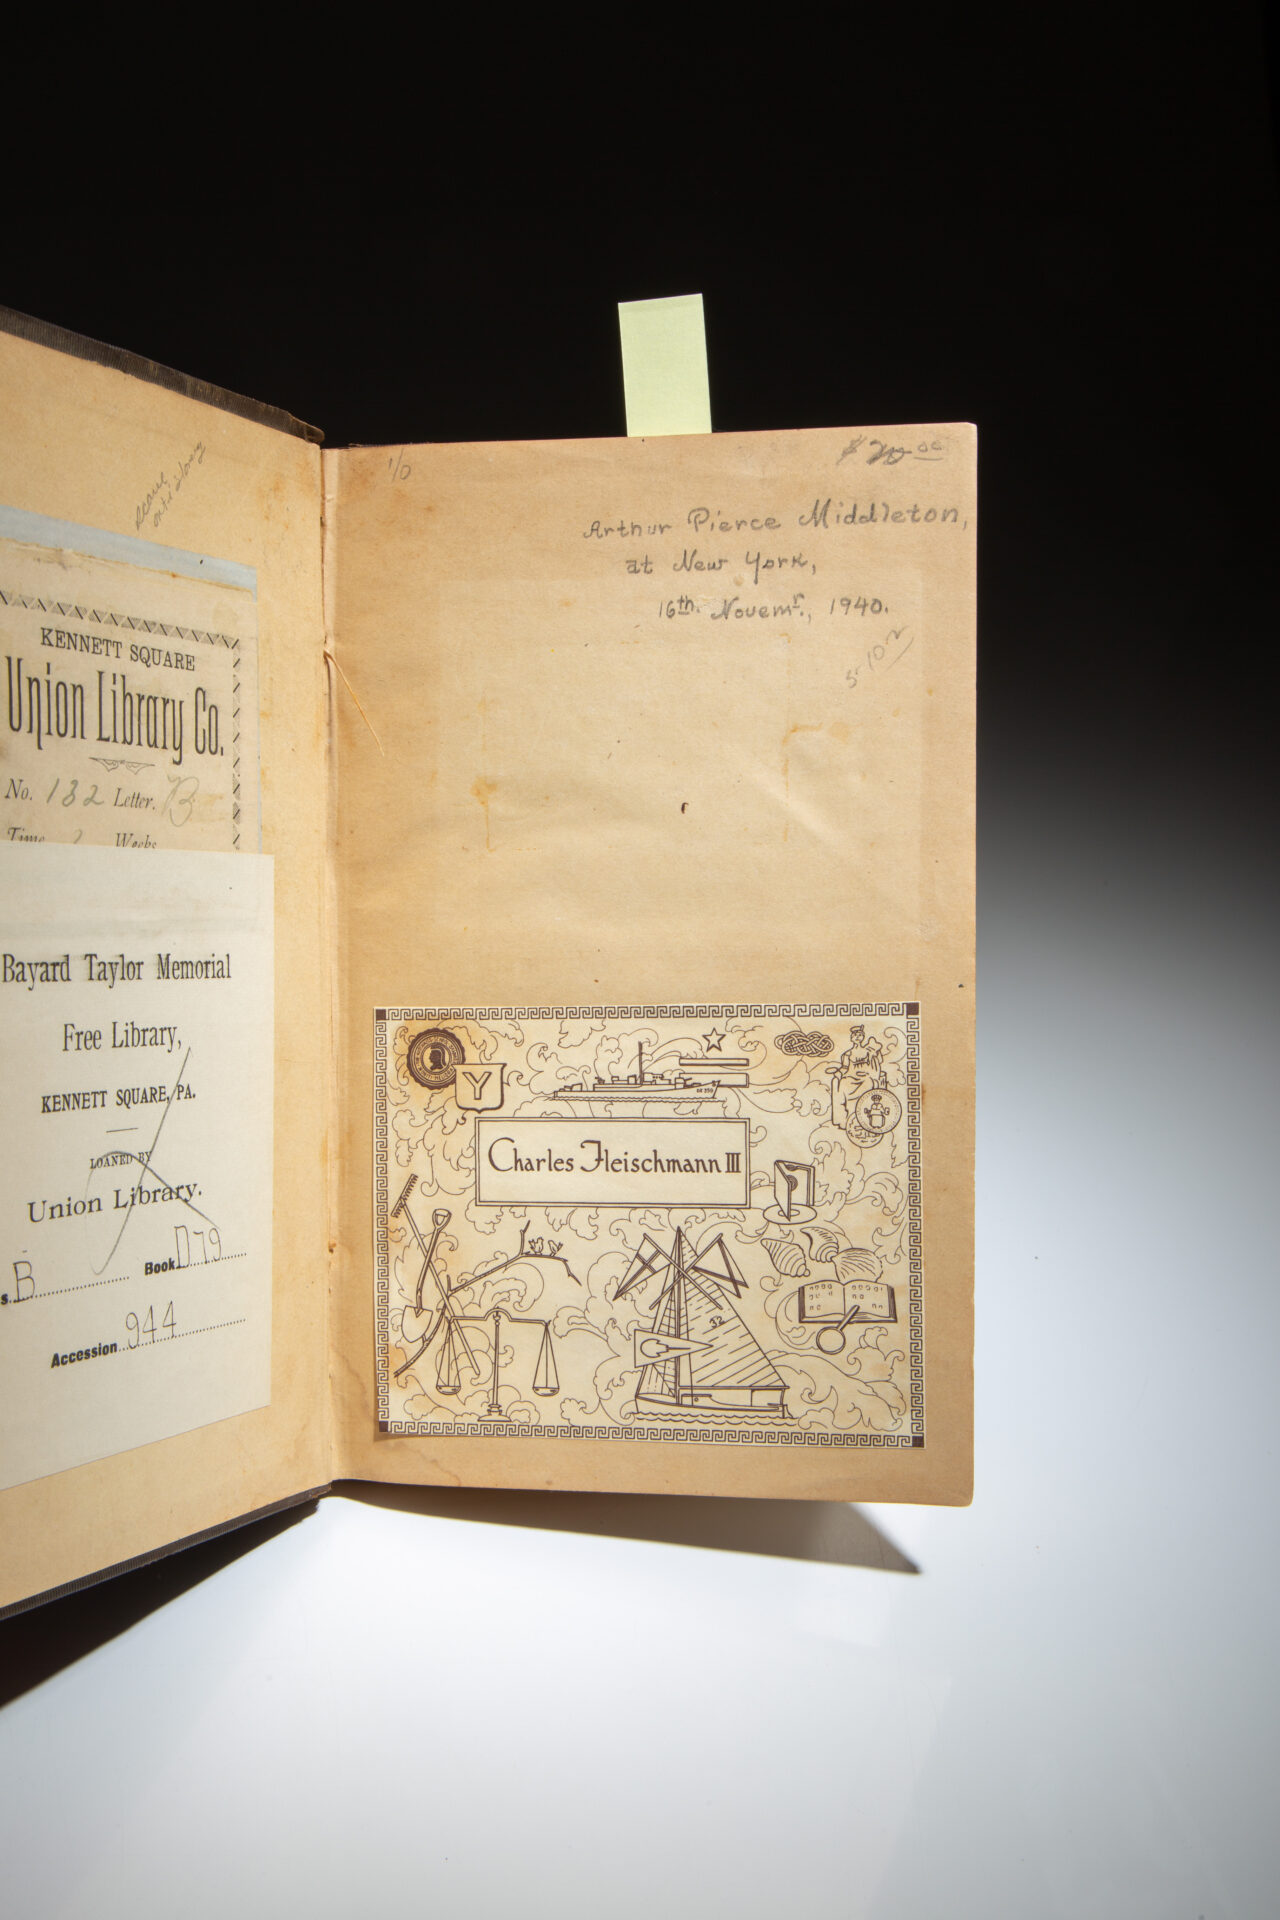 KENNETT SQUARE
Union Library Co.
No. 132 Letter. B
Time 2 Weeks
Bayard Taylor Memorial
Free Library,
KENNETT SQUARE, PA.
LOANED BY
Union Library.
s. B Book D79
Accession 944
1/0
$ 20 00
Arthur Pierce Middleton,
at New York,
16th. Novemr., 1940.
Y
Charles Fleischmann III
J2